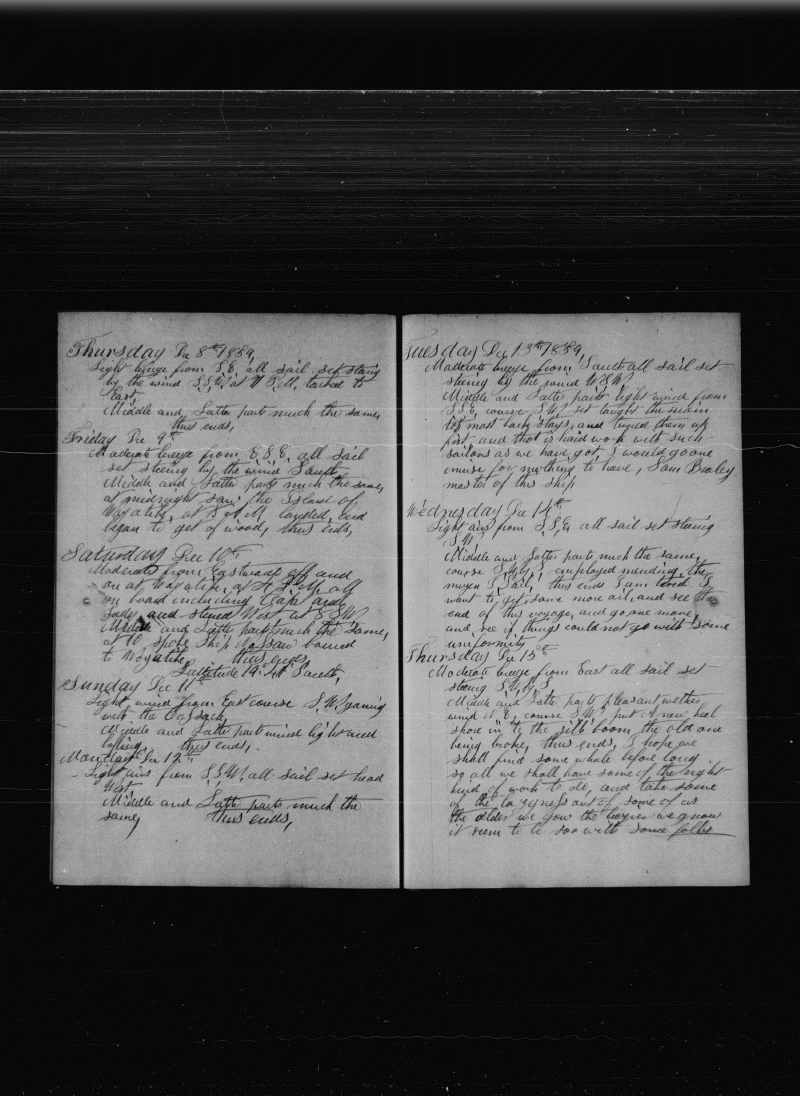 Thursday Dec 8th 1859,
Light breeze from S.E. all sail set steering
by the wind S.S.W. at 4 P.M. tacked to
East,
Middle and Latter parts much the same,
thus ends,
Friday Dec 9th
Moderate breeze from E.S.E. all sail
set steering by the wind South
Middle and Latter parts much the same,
at midnight saw the Island of
at 8 A.M. landed, and
began to get of wood, thus ends,
Saturday Dec 10th
Moderate from Eastward off and
on at all
on board including Capt and
Lady, and steered West at S.S.W.
Middle and Latter parts much the same,
at spoke Ship bound
to thus ends,
Latitude 19 South,
Sunday Dec 11th
Light wind from East course S.W. gaming
with the
Middle and Latter parts wind light and
thus ends,
Monday Dec 12th
Light airs from S.S.W. all sail set head
West
Middle and Latter parts much the
same, thus ends,
Tuesday Dec 13th 1859,
Moderate breeze from South all sail set
steering by the wind W.S.W.
Middle and Latter parts light wind from
S.S.E. course S.W. set taught the mizen
top mast back stays, and tuned them up
first and that is haid work with such
sailors as we have got, I would go one
cruise for nothing to have, Sam Braley
master of this ship
Wednesday Dec 14th
Light airs from S.S.E. all sail set steering
S.W.
Middle and Latter parts much the same,
course S.W. by S. employed mending the
mizen T. Sail, thus ends I am tired I
want to get some more oil, and see the
end of this voyage, and go one more,
and see if things could not go with some
uniformity
Thursday Dec 15th
Moderate breeze from East all sail set
steering S.W. by S.
Middle and Latter parts pleasant wether
wind N.E. course S.W. put A new heel
in to the jibb boom, the old one
being broke, thus ends, I hope we
shall find some whale before long
so all we shall have some of the right
kind of work to do, and take some
of the lazyness out of some of us
the older we grow the lazyer we grow
it seem to be soo with some folks